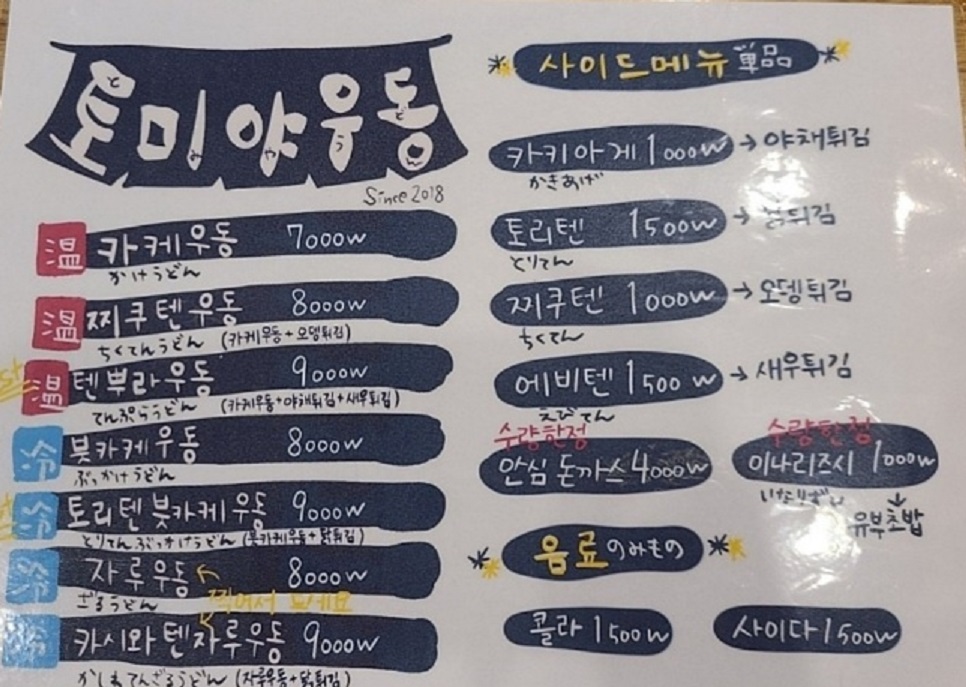 토미야우동
と み や う どん
Since 2018
温 카케우동 7000w
かけうどん
温 찌쿠텐우동 8000w
ちくてんうどん (카케우동+오뎅튀김)
温 텐뿌라우동 9000w
てんぷらうどん (카케우동+야채튀김+새우튀김)
冷 붓카케우동 8000w
ぶっかけうどん
冷 토리텐붓카케우동 9000w
とりてんぶっかけうどん (붓카케우동+닭튀김)
冷 자루우동 8000w
ざるうどん 찍어서 드세요
冷 카시와텐자루우동 9000w
かしわてんざるうどん (자루우동+닭튀김)
사이드메뉴 単品
카키아게 1000w → 야채튀김
かきあげ
토리텐 1500w → 닭튀김
とりてん
찌쿠텐 1000w → 오뎅튀김
ちくてん
에비텐 1500w → 새우튀김
えびてん
수량한정
안심돈까스 4000w
수량한정
이나리즈시 1000w
いなりずし
유부초밥
음료 のみもの
콜라 1500w
사이다 1500w